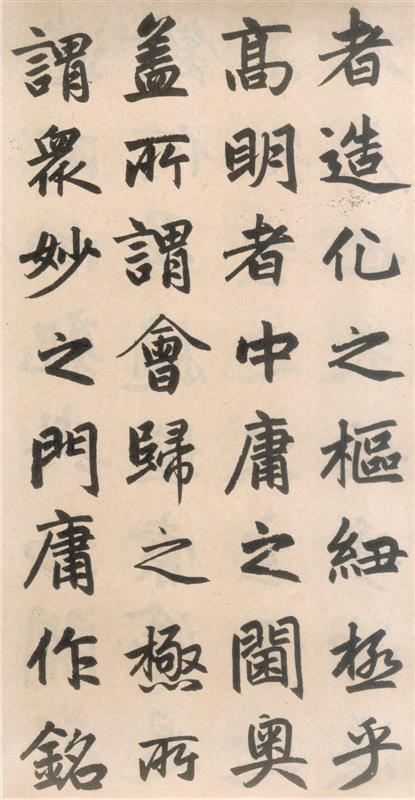 者造化之樞紐極乎
高明者中庸之閫奧
葢所謂會歸之極所
謂眾妙之門庸作銘